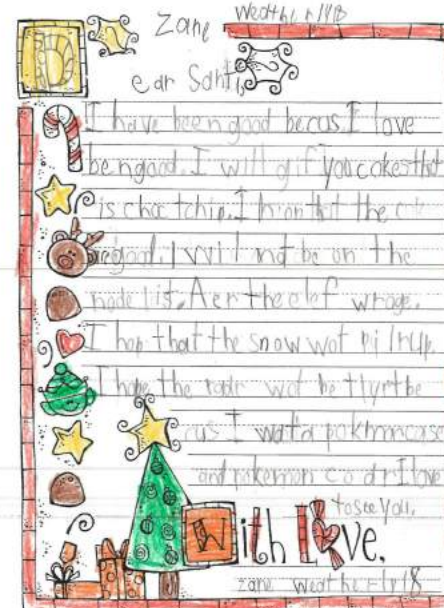 Zane Weatherly 18
Dear Santa,
I have been good becus I love
bengood. I will gif you cokes that
is choc tchip. I hron that the
are good. I will not be on the
node list. Aer the elef wroge.
I hop that the snow wot pil rup.
I hope the wot be
cus I wat a pokmoncase
and pokemon codr I love
to see you.
With Love,
zane weatherly 18